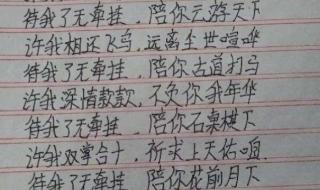 待我了无牵挂，陪你云游天下
许我相还飞鸟，远离尘世喧哗
待我了无牵挂，陪你古道打马
许我深情款款，不负你我年华
待我了无牵挂，陪你石桌棋下
许我双掌合十，祈求上天佑咱.
待我了无牵挂，陪你花前月下